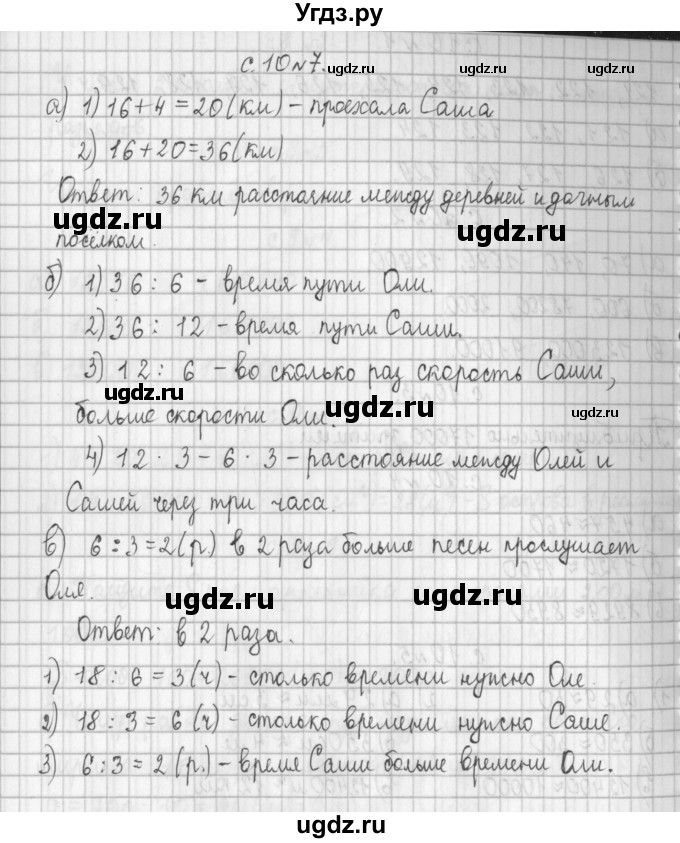 Угдз.ру
с. 10 №7.
ugdz.ru
ugdz.ru
а) 1) 16+4=20(км) – проехала Саша
2) 16+20=36(км)
Ответ: 36 км расстояние между деревней и дачным
ugdz.ru
ugdz.ru
посёлком.
б) 1) 36 : 6 – время пути Оли.
2) 36 : 12 – время пути Саши.
3) 12 : 6 – во сколько раз скорость Саши,
ugdz.ru
ugdz.ru
ugdz.ru
больше скорости Оли.
4) 12 · 3 – 6 · 3 – расстояние между Олей и
Сашей через три часа.
в) 6 : 3 = 2(р.) в 2 раза больше песен прослушает
Оля.
ugdz.ru
ugdz.ru
Ответ: в 2 раза.
1) 18 : 6 = 3(ч) – столько времени нужно Оле.
2) 18 : 3 = 6(ч) – столько времени нужно Саше.
3) 6:3 = 2 (р.) – время Саши больше времени Оли.
ugdz.ru